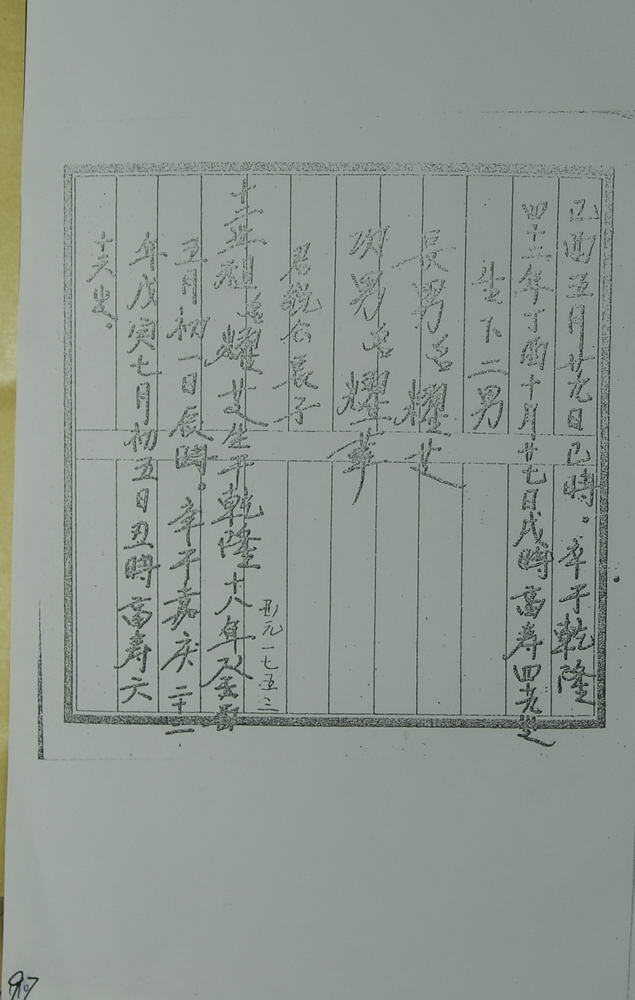 己酉五月廿九日巳時。卒于乾隆
四十二年丁酉十月廿七日戌時高寿四十九岁
生下二男
長男名耀芝
次男名耀華
君锐公長子
西元一七五三
十二世祖名耀芝生于乾隆十八年
五月初一日辰時。卒于嘉庆二十三
年戊寅七月初五日丑時高寿六
十六岁。